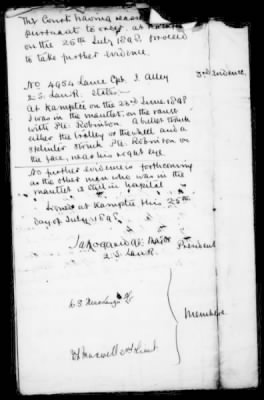 The Court having reas
pursuant to order, at Kamptee
on the 25th July 1898, proceed
to take further evidence.
No 4954 Lance Cpl. J. Alley 3rd Evidence.
2. S. Lan. R. States—
At Kamptee on the 22nd June 1898
I was in the mantlet, on the range
with Pte. Robinson. A bullet struck
either the trolley or the wall and a
splinter struck Pte. Robinson on
the face, near his right eye.
No further evidence is forthcoming
as the other man who was in the
mantlet is still in hospital
Signed at Kamptee this 25th
day of July 1898.
Major President
2. S. Lan. R.
Members
Maxwell Lieut